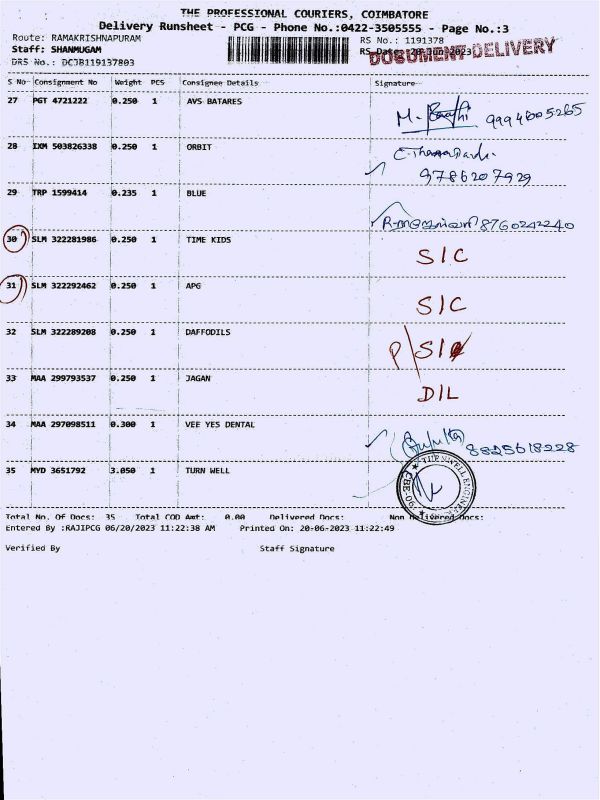 THE PROFESSIONAL COURIERS, COIMBATORE
Delivery Runsheet - PCG - Phone No.:0422-3505555 - Page No.:3
Route: RAMAKRISHNAPURAM RS No.: 1191378
Staff: SHANMUGAM RS Date: 20-Jun-2023
DOCUMENT DELIVERY
DRS No.: DCJB119137803
S No Consignment No Weight PCS Consignee Details Signature
27 PGT 4721222 0.250 1 AVS BATARES M. 9994605265
28 IXM 503826338 0.250 1 ORBIT
9786207929
29 TRP 1599414 0.235 1 BLUE
8760242240
30 SLM 322281986 0.250 1 TIME KIDS
S/C
31 SLM 322292462 0.250 1 APG
S/C
32 SLM 322289208 0.250 1 DAFFODILS
33 MAA 299793537 0.250 1 JAGAN
D/L
34 MAA 297098511 0.300 1 VEE YES DENTAL
8825618228
35 MYD 3651792 3.050 1 TURN WELL
Total No. Of Docs: 35 Total COD Amt: 0.00 Delivered Docs: Non Delivered Docs:
Entered By :RAJIPCG 06/20/2023 11:22:38 AM Printed On: 20-06-2023 11:22:49
Verified By Staff Signature